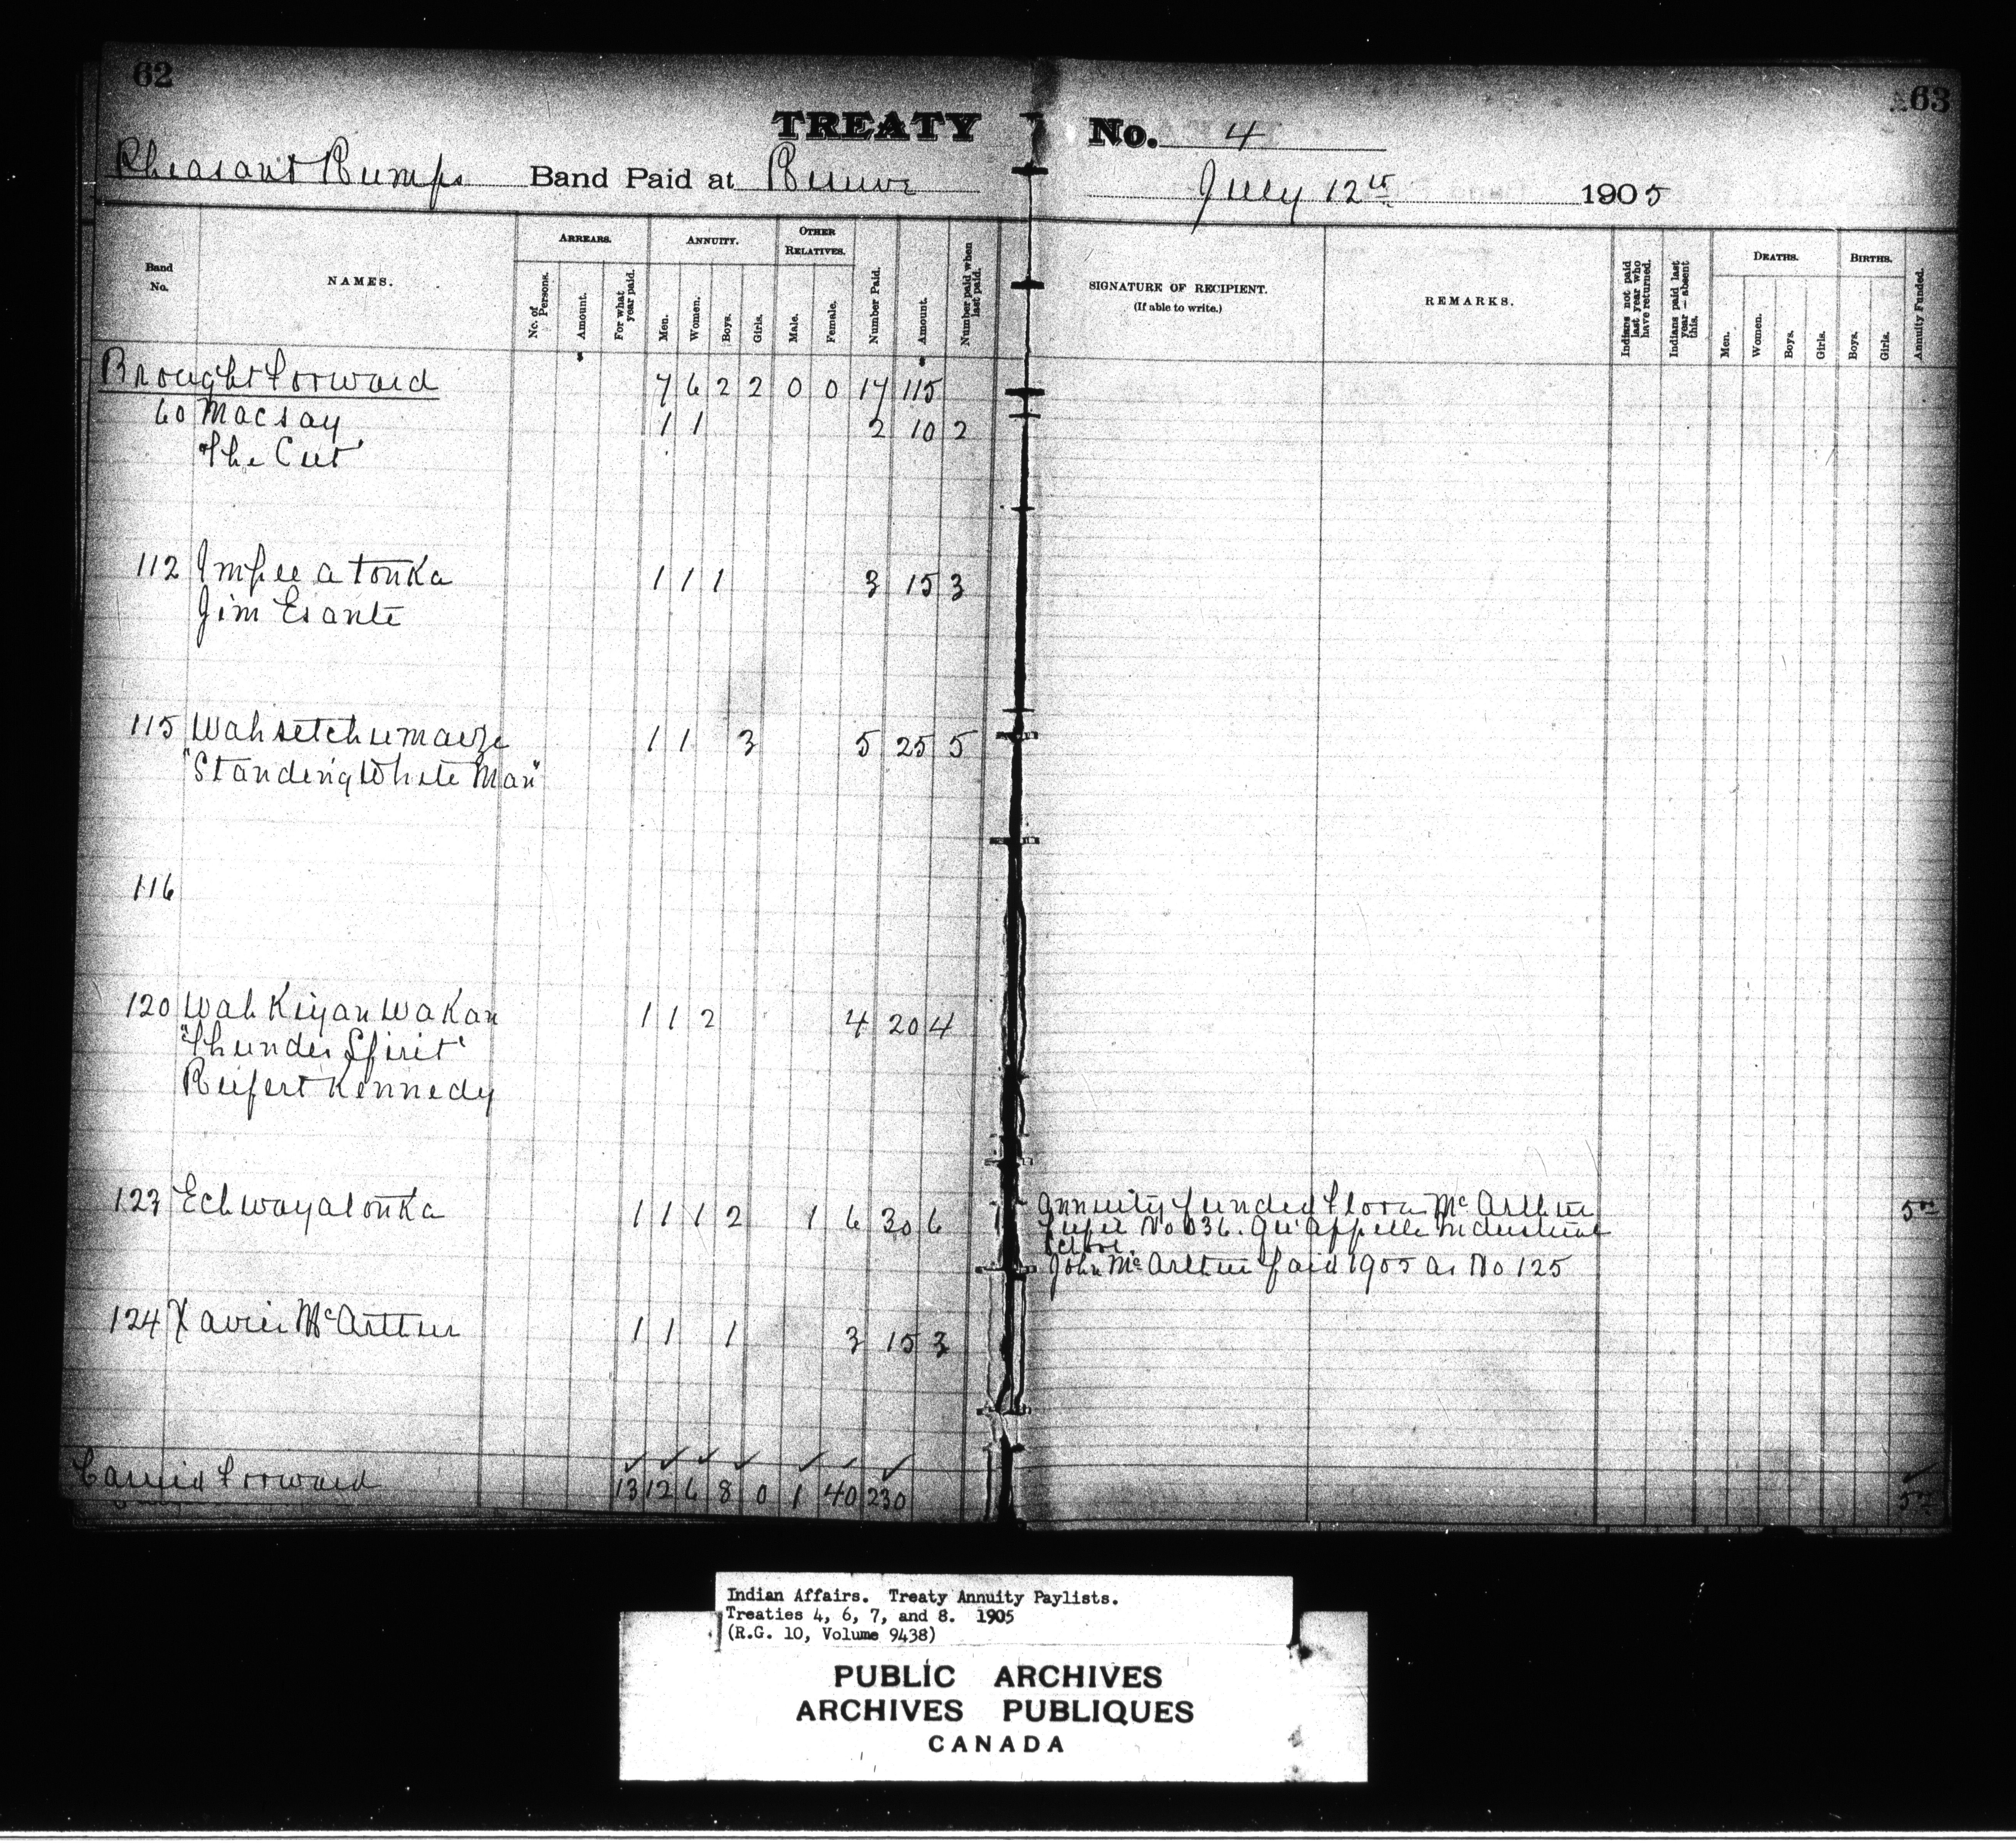 62
63
TREATY No. 4
Pheasant Rumps Band Paid at Reserve July 12th 1905
Band No.
NAMES.
ARREARS.
No. of Persons.
Amount.
For what year paid.
ANNUITY.
Men.
Women.
Boys.
Girls.
OTHER RELATIVES.
Male.
Female.
Number Paid.
Amount.
Number paid when last paid.
SIGNATURE OF RECIPIENT.
(If able to write.)
REMARKS.
Indians not paid last year who have returned.
Indians paid last year – absent this.
DEATHS.
Men.
Women.
Boys.
Girls.
BIRTHS.
Boys.
Girls.
Annuity Funded.
Brought Forward 7 6 2 2 0 0 17 115
60 Macsay 1 1 2 10 2
"The Cut"
112 Impee a tonka 1 1 1 3 15 3
Jim Esante
115 Wahsetchu 1 1 3 5 25 5
"Standing White Man"
116
120 Wah Kiyan Wakan 1 1 2 4 20 4
"Thunder Spirit"
Kennedy
123 Echwayatonka 1 1 1 2 1 6 30 6 Annuity funded Flora McArthur 5
No 036. Qu'appelle Industrial
School.
John McArthur paid 1905 as No 125
124 Xavier McArthur 1 1 1 3 15 3
Carried Forward 13 12 6 8 0 1 40 230 5
Indian Affairs. Treaty Annuity Paylists.
Treaties 4, 6, 7, and 8. 1905
(R.G. 10, Volume 9438)
PUBLIC ARCHIVES
ARCHIVES PUBLIQUES
CANADA